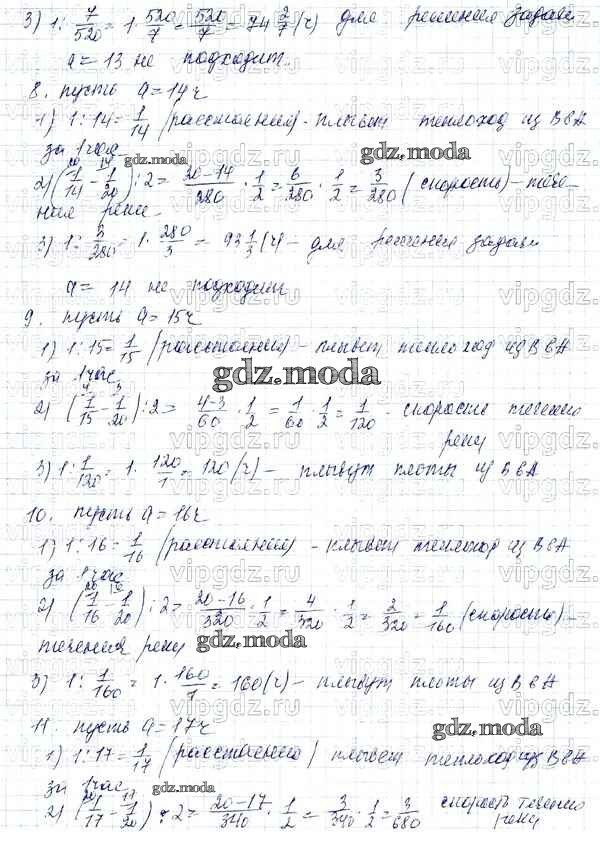 3) 1 : 7/520 = 1 · 520/7 = 520/7 = 74 2/7 (ч) для решения задачи
a = 13 не подходит.
8. пусть a = 14 ч
1) 1 : 14 = 1/14 (расстояния) - плывет теплоход из В в А
за 1 час
2) (1/14 - 1/20) : 2 = 20-14/280 · 1/2 = 6/280 · 1/2 = 3/280 (скорость) - тече-
ния реки
3) 1 : 3/280 = 1 · 280/3 = 93 1/3 (ч) - для решения задачи
a = 14 не подходит
9. пусть a = 15 ч
1) 1 : 15 = 1/15 (расстояния) - плывет теплоход из В в А
за 1 час
2) (1/15 - 1/20) : 2 = 4-3/60 · 1/2 = 1/60 · 1/2 = 1/120 - скорость течения
реки
3) 1 : 1/120 = 1 · 120/1 = 120 (ч) - плывут плоты из В в А
10. пусть a = 16 ч
1) 1 : 16 = 1/16 (расстояния) - плывет теплоход из В в А
за 1 час
2) (1/16 - 1/20) : 2 = 20-16/320 · 1/2 = 4/320 · 1/2 = 2/320 = 1/160 (скорость) -
течения реки
3) 1 : 1/160 = 1 · 160/1 = 160 (ч) - плывут плоты из В в А
11. пусть a = 17 ч
1) 1 : 17 = 1/17 (расстояние) плывет теплоход из В в А
за 1 час
2) (1/17 - 1/20) : 2 = 20-17/340 · 1/2 = 3/340 · 1/2 = 3/680 скорость течения
реки
gdz.moda
vipgdz.ru